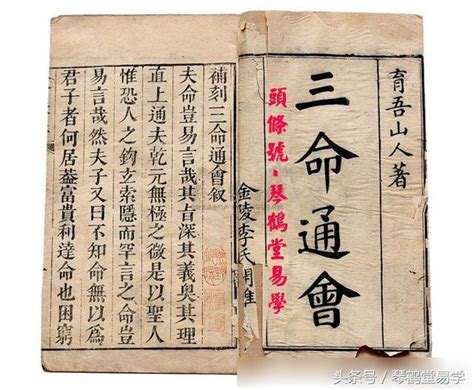 育吾山人著
三命通會
頭條號·琴鶴堂易學
金陵李氏
補刻三命通會叙
夫命豈易言哉其旨深其義奧其理
直上通夫乾元無極之微是以聖人
惟恐人之鉤玄索隱而罕言之命豈
易言哉然夫子又曰不知命無以為
君子者何居蓋富貴利達命也困窮
头条号/琴鹤堂易学